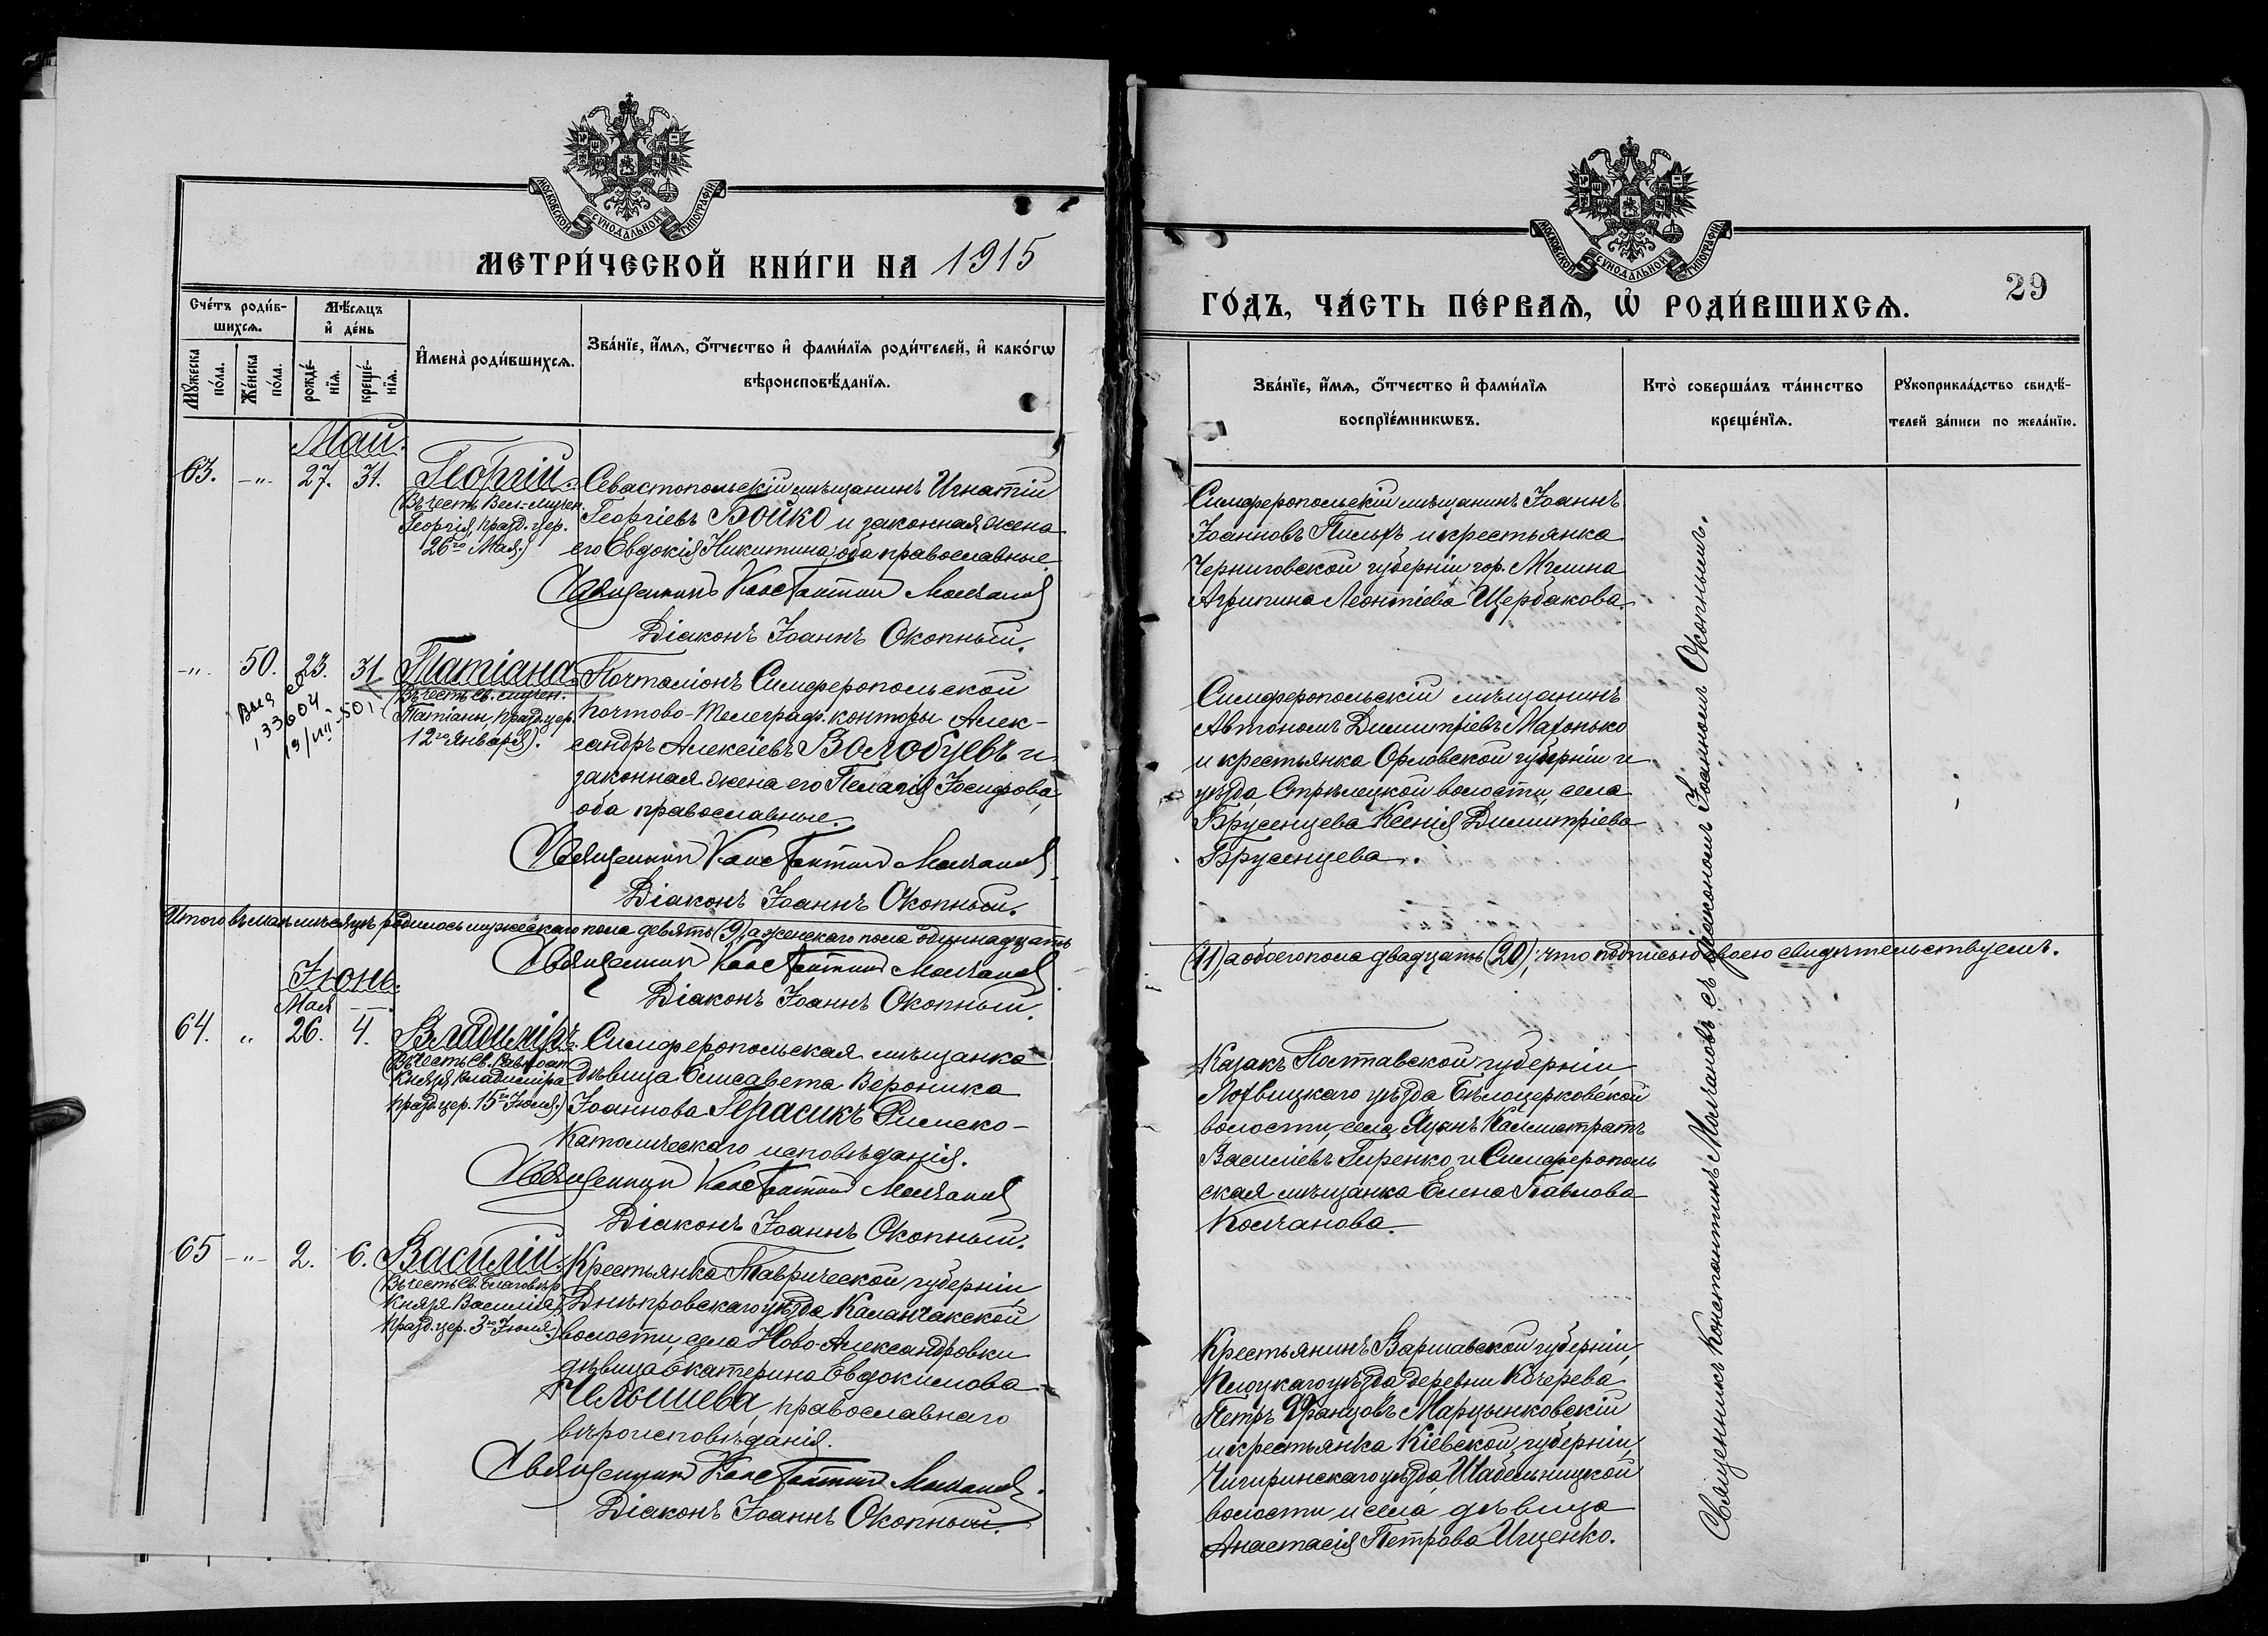 МОСКОВСКОЙ СѴНОДАЛЬНОЙ ТИПОГРАФІИ
МЕТРИ́ЧЕСКОЙ КНИ́ГИ НА 1915
Сче́тъ роди́в-
шихсѧ.
Мѣ́сѧцъ
и҆ де́нь
Мꙋ́жеска
по́ла.
Же́нска
по́ла.
рожде́-
нїѧ.
креще́-
нїѧ.
И҆мена̀ роди́вшихсѧ.
Зва́нїе, и҆́мѧ, ѻ҆́тчество и҆ фами́лїѧ роди́телей, и҆ како́гѡ
вѣроисповѣ́данїѧ.
Май.
63. -"- 27. 31. Георгій.
(Въ честь Вел.-мучен.
Георгія, празд. цер.
26го Мая.)
Севастопольскій мѣщанинъ Игнатій
Георгіевъ Бойко и законная жена
его Евдокія Никитина, оба православные.
Священникъ Константинъ Молчановъ
Діаконъ Іоаннъ Окопный.
-"- 50. 23. 31. Татіана.
(Въ честь Св. мучен.
Татіаны, празд. цер.
12го Января).
133604
Почталіонъ Симферопольской
почтово-телеграф. конторы Алек-
сандръ Алексіевъ Волобуевъ и
законная жена его Пелагія Іосифова,
оба православные.
Священникъ Константинъ Молчановъ
Діаконъ Іоаннъ Окопный.
Итого въ маѣ мѣсяцѣ родилось мужескаго пола девять (9), а женскаго пола одиннадцать
Священникъ Константинъ Молчановъ
Діаконъ Іоаннъ Окопный.
Іюнь.
Мая
64. " 26. 4. Владиміръ.
(Въ честь Св. Равноап.
Князя Владиміра
празд. цер. 15го Іюля.)
Симферопольская мѣщанка
дѣвица Елисавета Вероника
Іоаннова Герасикъ Римско-
Католическаго исповѣданія.
Священникъ Константинъ Молчановъ
Діаконъ Іоаннъ Окопный.
65 -"- 2. 6. Василій.
(Въ честь Св. Благовѣр.
Князя Василія,
празд. цер. 3го Іюля.)
Крестьянка Таврической губерніи,
Днѣпровскаго уѣзда Каланчакской
волости, села Ново-Александровки
дѣвица Екатерина Евдокимова
Челышева, православнаго
вѣроисповѣданія.
Священникъ Константинъ Молчановъ
Діаконъ Іоаннъ Окопный.
МОСКОВСКОЙ СѴНОДАЛЬНОЙ ТИПОГРАФІИ
29
ГО́ДЪ, ЧА́СТЬ ПЕ́РВАѦ, Ѡ҆ РОДИ́ВШИХСѦ.
Зва́нїе, и҆́мѧ, ѻ҆́тчество и҆ фами́лїѧ
воспрїе́мникѡвъ.
Кто̀ соверша́лъ та́инство
креще́нїѧ.
Рꙋкоприкла́дство свидѣ́-
телей за́писи по жела́нїю.
Симферопольскій мѣщанинъ Іоаннъ
Іоанновъ Пильхъ и крестьянка
Черниговской губерніи гор. Мглина
Агрипина Леонтіева Щербакова.
Симферопольскій мѣщанинъ
Автономъ Димитріевъ Махонько
и крестьянка Орловской губерніи и
уѣзда Стрѣлецкой волости, села
Брусенцева Ксенія Димитріева
Брусенцева.
(11), а обоего пола двадцать (20); что подписью своею свидѣтельствуемъ.
Казакъ Полтавской губерніи,
Лохвицкаго уѣзда Бѣлоцерковской
волости, села Яцанъ Каллистратъ
Василіевъ Гиренко и Симферополь
ская мѣщанка Елена Павлова
Колчанова.
Крестьянинъ Варшавской губерніи,
Плоцкаго уѣзда деревни Кочерева
Петръ Францовъ Марцынковскій
и крестьянка Кіевской губерніи,
Чигиринскаго уѣзда, Шабельницкой
волости и села дѣвица
Анастасія Петрова Ищенко.
Священникъ Константинъ Молчановъ съ діакономъ Іоанномъ Окопнымъ.